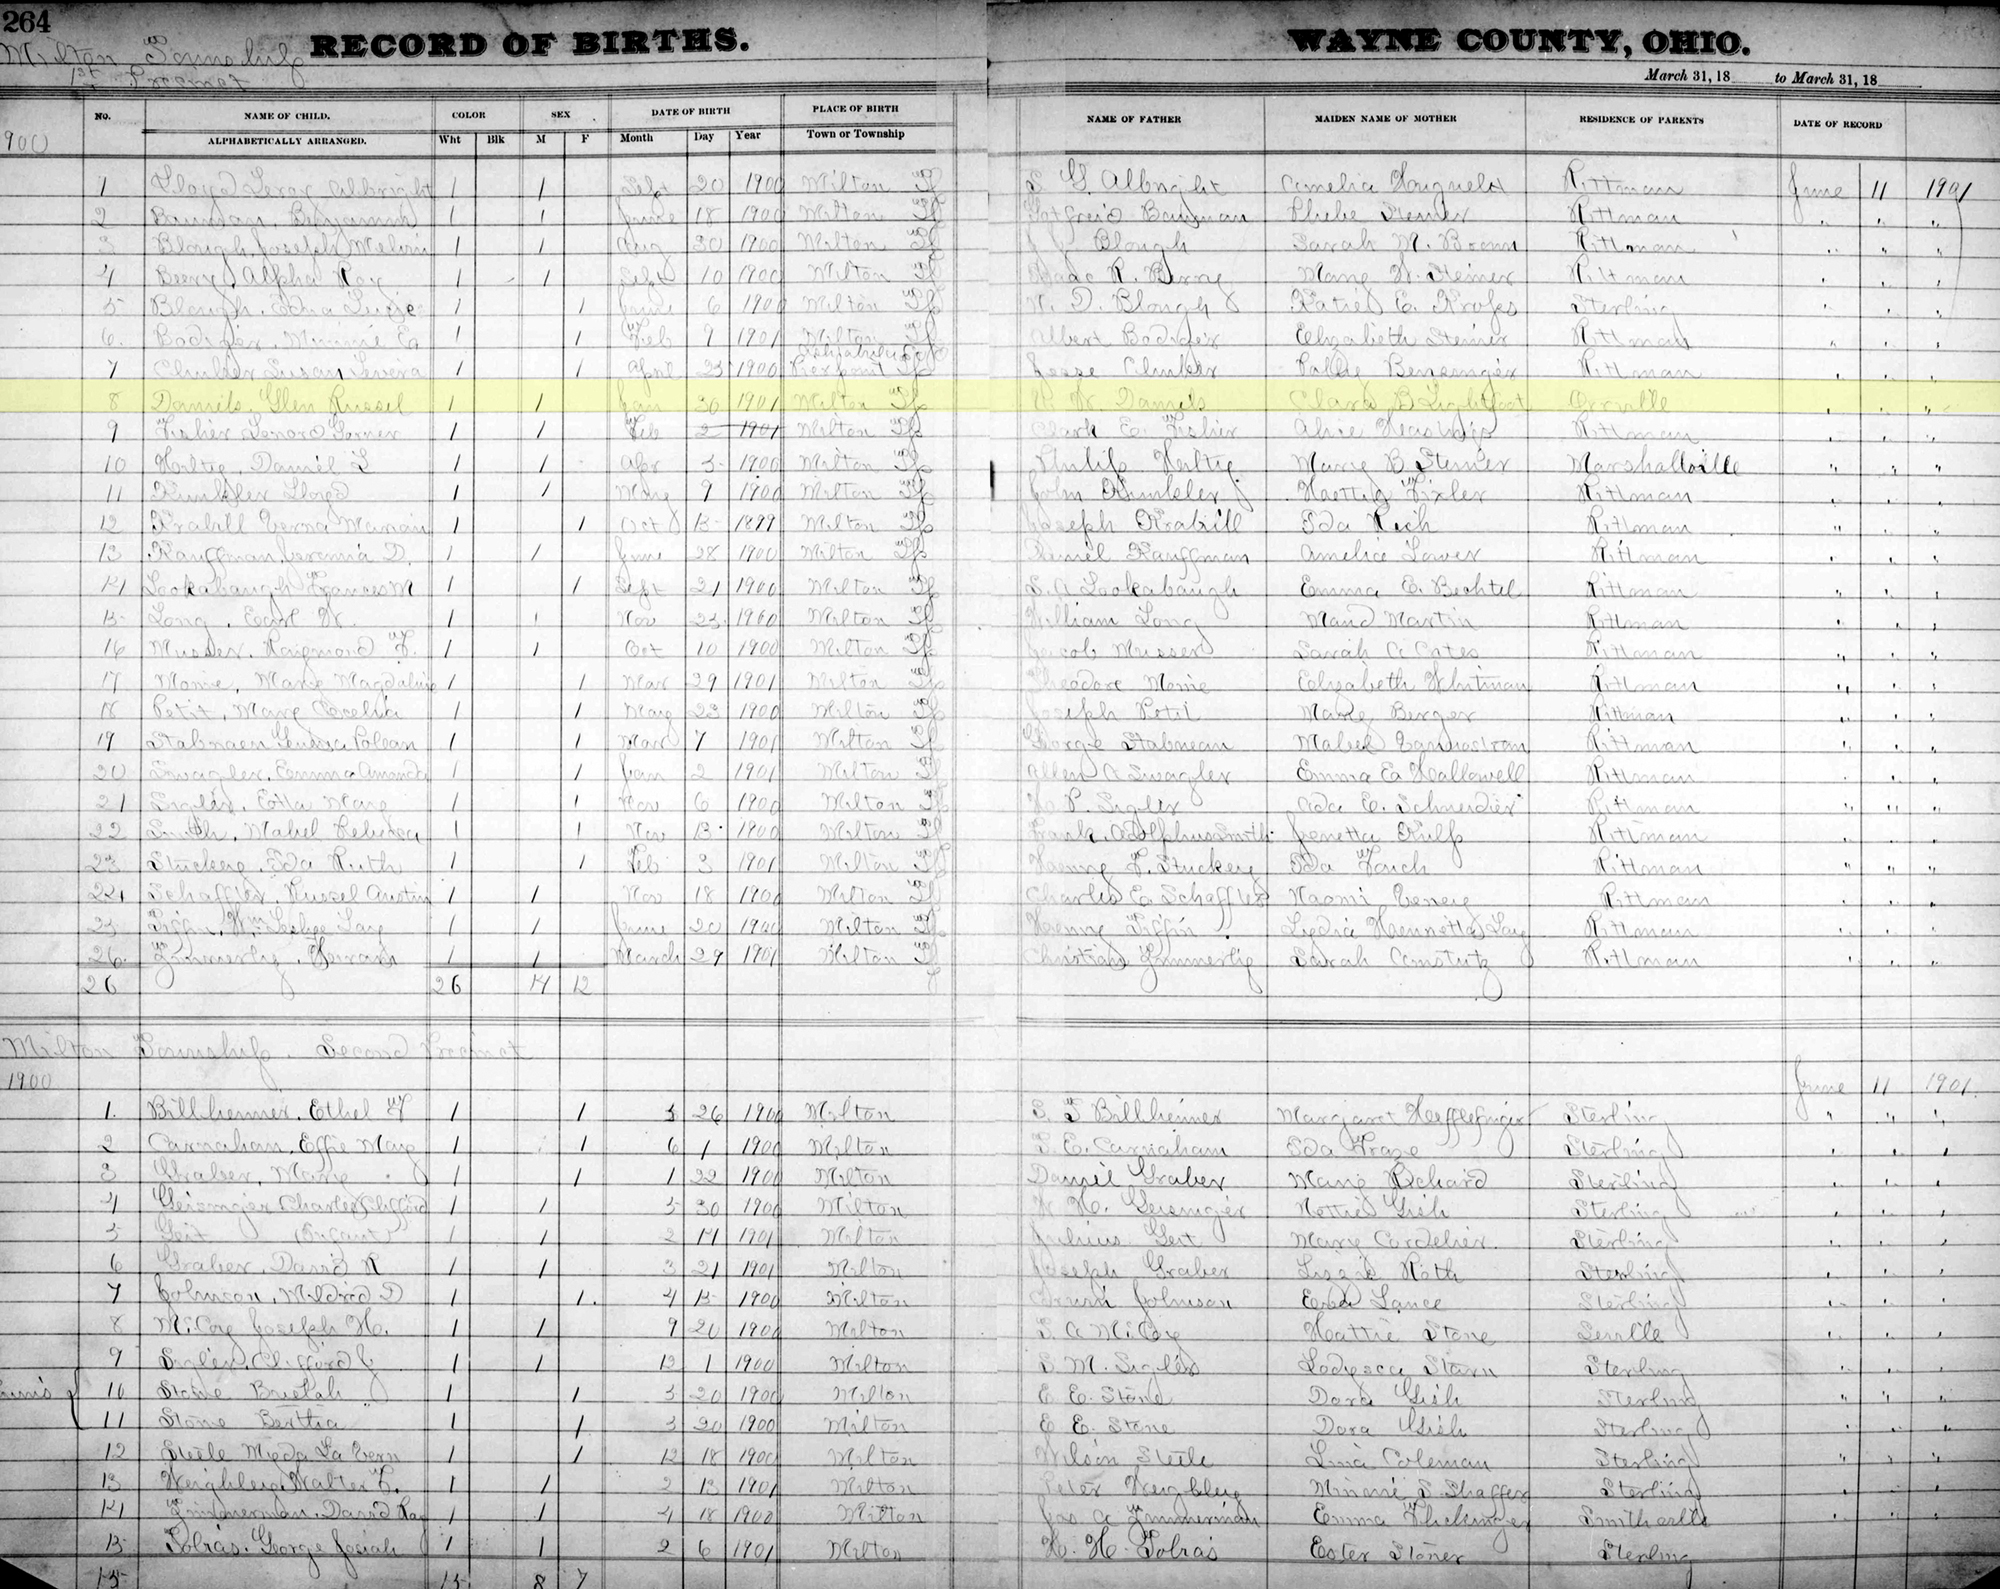 264
RECORD OF BIRTHS. WAYNE COUNTY, OHIO.
Milton Township
1st Precinct
March 31, 18 to March 31, 18
No. NAME OF CHILD. COLOR SEX DATE OF BIRTH PLACE OF BIRTH NAME OF FATHER MAIDEN NAME OF MOTHER RESIDENCE OF PARENTS DATE OF RECORD
ALPHABETICALLY ARRANGED. Wht Blk M F Month Day Year Town or Township
1900
1 Lloyd Leroy Albright 1 1 Sept 20 1900 Milton Tp S G. Albright Amelia Rittman June 11 1901
2 Bauman, Benjamin 1 1 June 18 1900 Milton Tp Gotfreid Bauman Phebe Steiner Rittman " " "
3 Blough, Joseph Melvin 1 1 Aug 30 1900 Milton Tp Blough Sarah M. Brenn Rittman " " "
4 Beery, Alpha Roy 1 1 Sept 10 1900 Milton Tp Isaac R. Berry Mary W. Steiner Rittman " " "
5 Blough, Edna 1 1 June 6 1900 Milton Tp D. Blough Katie E. Sterling " " "
6 Bodiger, Minnie Ea 1 1 Feb 9 1901 Milton Tp Albert Bodiger Elizabeth Steiner Rittman " " "
7 Susan 1 1 April 23 1900 Pierpont Tp Jesse Rittman " " "
8 Daniels, Glen Russel 1 1 Jan 30 1901 Milton Tp W. Daniels Clara B Lightfoot Orrville " " "
9 Fisher 1 1 Feb 2 1901 Milton Tp Clark E. Fisher Alice Rittman " " "
10 Hertig, Daniel L 1 1 Apr 5 1900 Milton Tp Philip Hertig Mary B Steiner Marshallville " " "
11 Kunkler Lloyd 1 1 May 9 1900 Milton Tp John Kunkler Hettie Fixler Rittman " " "
12 Krabill Verna Marian 1 1 Oct 15 1899 Milton Tp Joseph Krabill Ida Rich Rittman " " "
13 Kauffman, D. 1 1 June 28 1900 Milton Tp Daniel Kauffman Amelia Lower Rittman " " "
14 Lookabaugh Frances M 1 1 Sept 21 1900 Milton Tp S. A Lookabaugh Emma E. Bechtel Rittman " " "
15 Long, Earl W. 1 1 Nov 25 1900 Milton Tp William Long Maud Martin Rittman " " "
16 Musser, Raigmond F. 1 1 Oct 10 1900 Milton Tp Jacob Musser Sarah A Cates Rittman " " "
17 Monie, Mary Magdaline 1 1 Mar 29 1901 Milton Tp Theodore Monie Elizabeth Whitman Rittman " " "
18 Petit, Mary Ecelia 1 1 May 23 1900 Milton Tp Joseph Petit Mary Berger Rittman " " "
19 1 1 Mar 7 1901 Milton Tp George Stabnean Mabel Rittman " " "
20 Swagler, Emma Amanda 1 1 Jan 2 1901 Milton Tp Allen A Swagler Emma Ea Hallowell Rittman " " "
21 Sigler, Etta May 1 1 Nov 6 1900 Milton Tp P. Sigler Ada E. Schneider Rittman " " "
22 Smith, Mabel Rebecca 1 1 Nov 13 1900 Milton Tp Frank Adolphus Smith Jenetta Kulp Rittman " " "
23 Stuckey, Ida Ruth 1 1 Feb 3 1901 Milton Tp Henry F. Stuckey Ida Rittman " " "
24 Schaffter, Russel Austin 1 1 Nov 18 1900 Milton Tp Charles E Schaffter Naomi Rittman " " "
25 Tiffin, Wm Leslye Lay 1 1 June 20 1900 Milton Tp Henry Tiffin Lydia Hennetta Lay Rittman " " "
26 Zimmerly, Hiram 1 1 March 29 1901 Milton Tp Christian Zimmerly Sarah Amstutz Rittman " " "
26 26 14 12
Milton Township. Second Precinct
1900 June 11 1901
1. Billheimer, Ethel F 1 1 3 26 1900 Milton S. F Billheimer Margaret Hefflefinger Sterling " " "
2 Carnahan, Effie May 1 1 6 1 1900 Milton S. E. Carnaham Ida Fraze Sterling " " "
3 Graber, Mary 1 1 1 22 1900 Milton Daniel Graber Mary Bechard Sterling " " "
4 Geisinger Charles Clifford 1 1 5 30 1900 Milton W H. Geisinger Nettie Gish Sterling " " "
5 Geit (Infant) 1 1 2 14 1901 Milton Julius Geit Mary Cordelier Sterling " " "
6 Graber, David R 1 1 3 21 1901 Milton Joseph Graber Lizzie Roth Sterling " " "
7 Johnson, Mildred D 1 1 4 15 1900 Milton Johnson Lance Sterling " " "
8 McCoy Joseph H. 1 1 9 20 1900 Milton S. A McCoy Hattie Stone Seville " " "
9 Sigler, Clifford J 1 1 12 1 1900 Milton S. M. Sigler Lodysca Starn Sterling " " "
10 Stone 1 1 3 20 1900 Milton E E. Stone Dora Gish Sterling " " "
11 Stone Bertha 1 1 3 20 1900 Milton E E. Stone Dora Gish Sterling " " "
12 Steele La Vern 1 1 12 18 1900 Milton Wilson Steele Lina Coleman Sterling " " "
13 Weighley, Walter F. 1 1 2 13 1901 Milton Peter Weighley Minnie S Shaffer Sterling " " "
14 Zimmerman, David Ray 1 1 4 18 1900 Milton Jas A Zimmerman Emma Flickinger Smithville " " "
15 Tobias, George Josiah 1 1 2 6 1901 Milton H. H. Tobias Ester Stoner Sterling
15 15 8 7